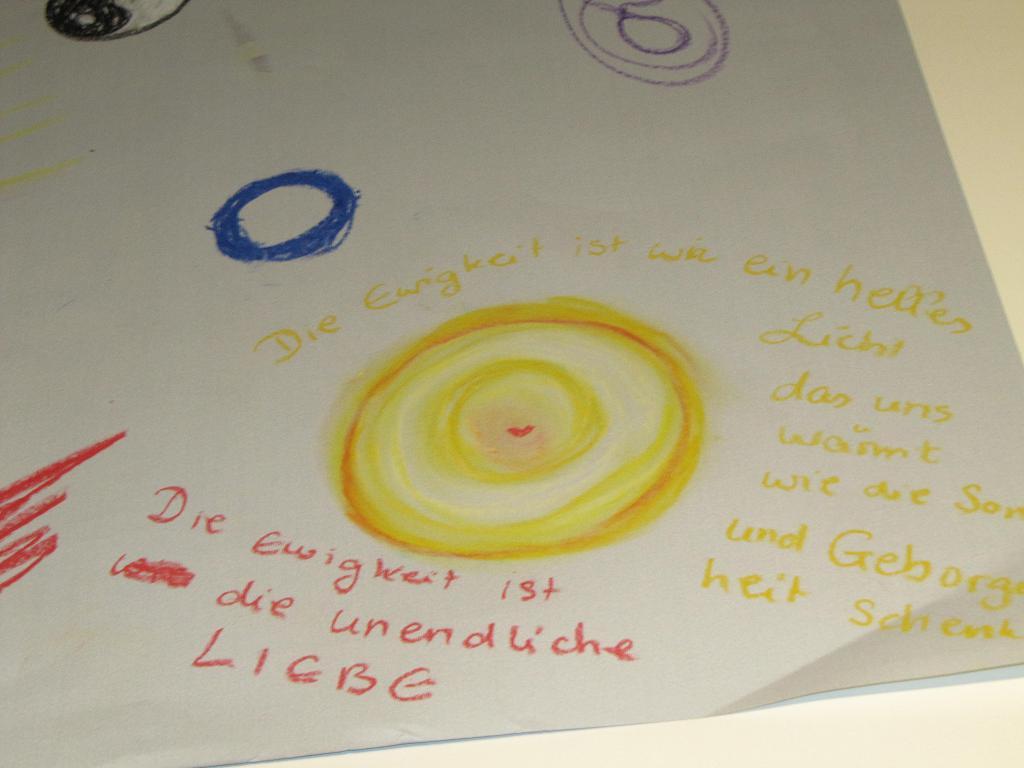 Die Ewigkeit ist wie ein helles
Licht
das uns
wärmt
wie die Son
und Geborge
heit Schenk
Die Ewigkeit ist
die unendliche
LIEBE